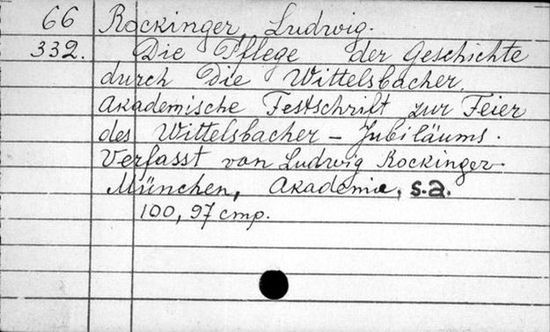 66 Rockinger, Ludwig.
332. Die Pflege der Geschichte
durch die Wittelsbacher.
Akademische Festschrift zur Feier
des Wittelsbacher – Jubiläums.
Verfasst von Ludwig Rockinger.
München, Akademie, s.a.
100, 97 cmp.